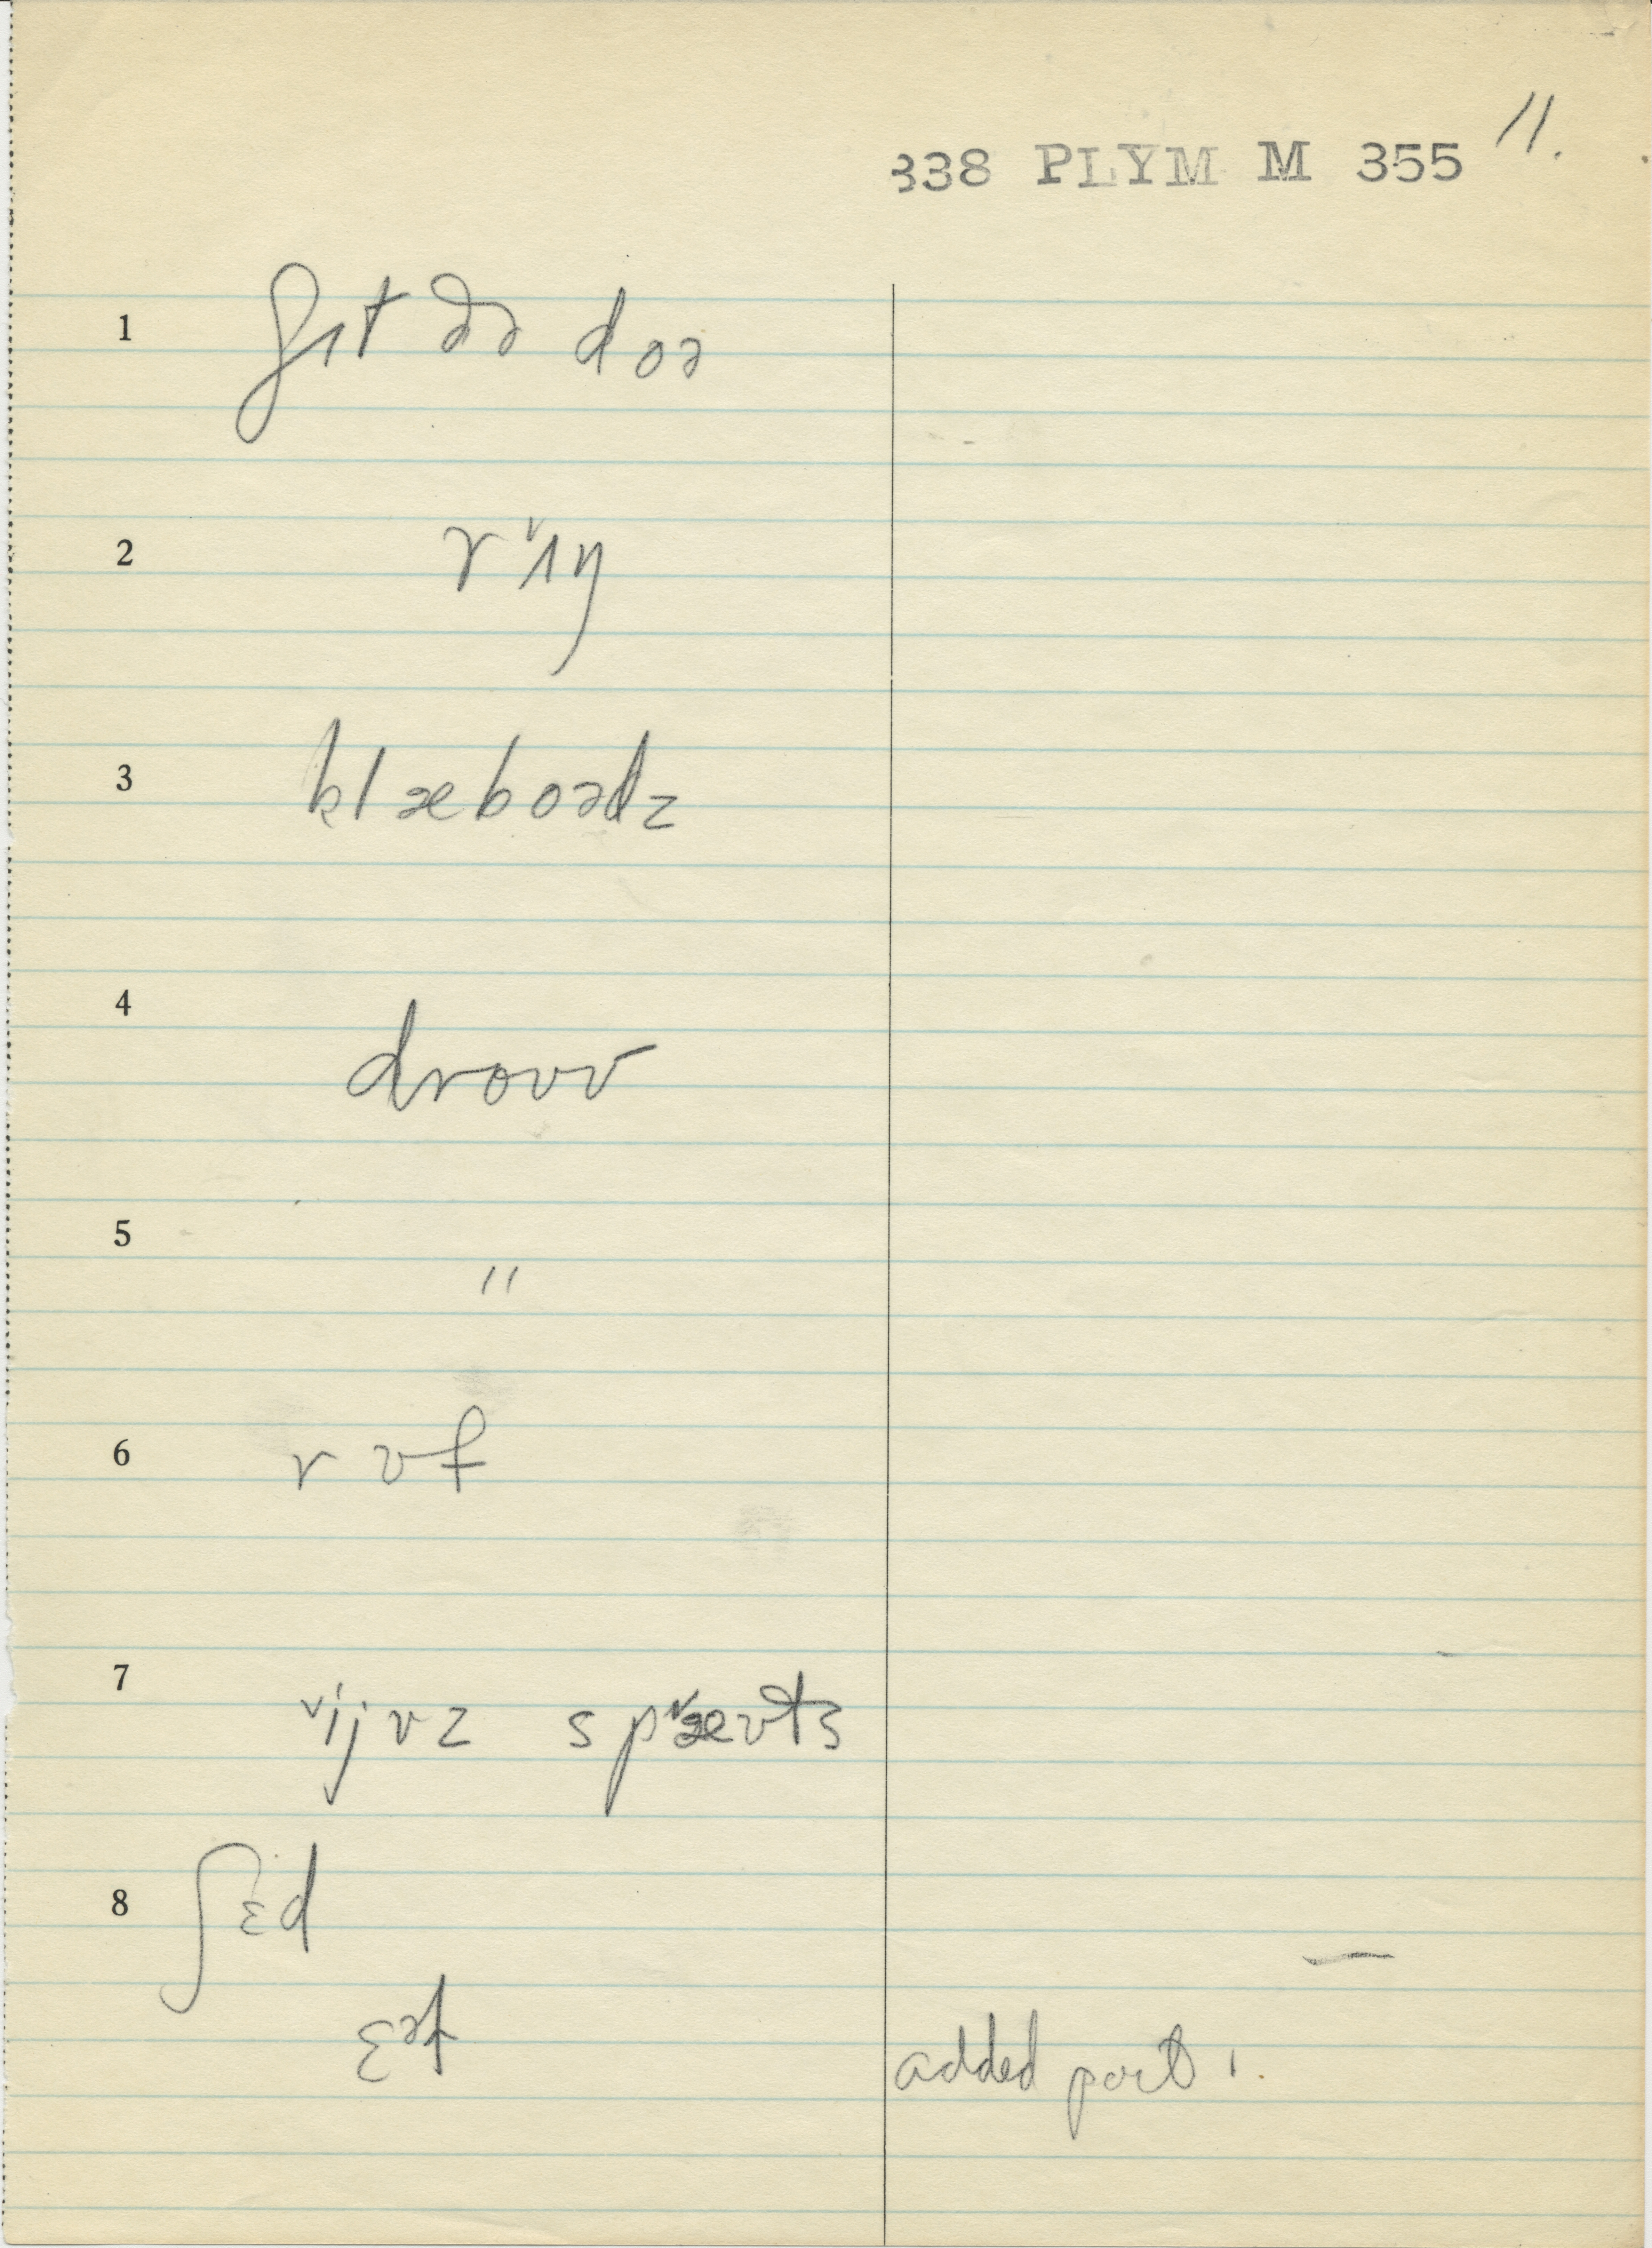 11.
338 PLYM M 355
1 ʃɪt ðə doə
2 rˇɪŋ
3 klæboədz
4 droʊv
5 "
6 rʊf
7 ˇijvz spˇæʊts
8 ʃɛd
ɛəf
added part ˈ.